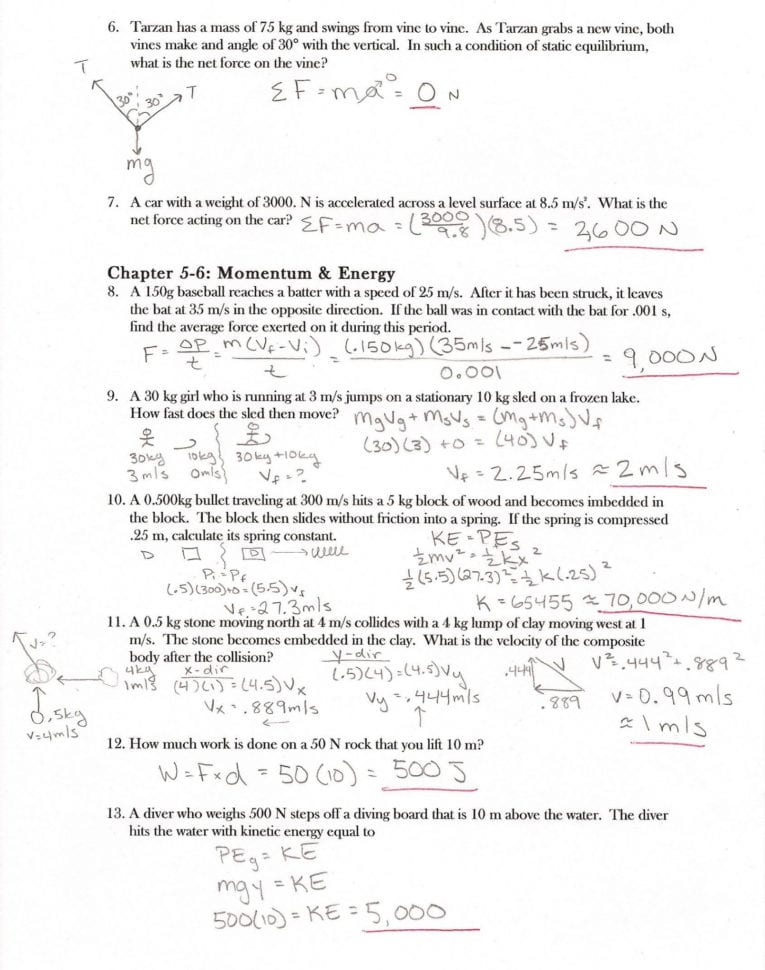 6. Tarzan has a mass of 75 kg and swings from vine to vine. As Tarzan grabs a new vine, both
vines make and angle of 30° with the vertical. In such a condition of static equilibrium,
what is the net force on the vine?
T
30° 30° T
ΣF = ma⁰ = 0 N
mg
7. A car with a weight of 3000. N is accelerated across a level surface at 8.5 m/s². What is the
net force acting on the car? ΣF = ma = (3000/9.8)(8.5) = 2,600 N
Chapter 5-6: Momentum & Energy
8. A 150g baseball reaches a batter with a speed of 25 m/s. After it has been struck, it leaves
the bat at 35 m/s in the opposite direction. If the ball was in contact with the bat for .001 s,
find the average force exerted on it during this period.
F = ΔP/t = m(Vf - Vi)/t = (.150kg)(35m/s - -25m/s)/0.001 = 9,000N
9. A 30 kg girl who is running at 3 m/s jumps on a stationary 10 kg sled on a frozen lake.
How fast does the sled then move? MgVg + MsVs = (Mg+Ms)Vf
(30)(3) + 0 = (40)Vf
30kg 10kg 30kg+10kg
3m/s 0m/s Vf = ?
Vf = 2.25m/s ≈ 2m/s
10. A 0.500kg bullet traveling at 300 m/s hits a 5 kg block of wood and becomes imbedded in
the block. The block then slides without friction into a spring. If the spring is compressed
.25 m, calculate its spring constant.
KE = PEs
½mv² = ½kx²
Pi = Pf
½(5.5)(27.3)² = ½k(.25)²
(.5)(300)+0 = (5.5)Vf
Vf = 27.3m/s
K = 65455 ≈ 70,000 N/m
11. A 0.5 kg stone moving north at 4 m/s collides with a 4 kg lump of clay moving west at 1
m/s. The stone becomes embedded in the clay. What is the velocity of the composite
body after the collision?
V=?
4kg
1m/s
0.5kg
V=4m/s
x-dir
(4)(1) = (4.5)Vx
Vx = .889m/s
y-dir
(.5)(4) = (4.5)Vy
Vy = .444m/s
.444 V
.889
V² = .444² + .889²
V = 0.99 m/s
≈ 1 m/s
12. How much work is done on a 50 N rock that you lift 10 m?
W = F×d = 50(10) = 500 J
13. A diver who weighs 500 N steps off a diving board that is 10 m above the water. The diver
hits the water with kinetic energy equal to
PEg = KE
mgy = KE
500(10) = KE = 5,000